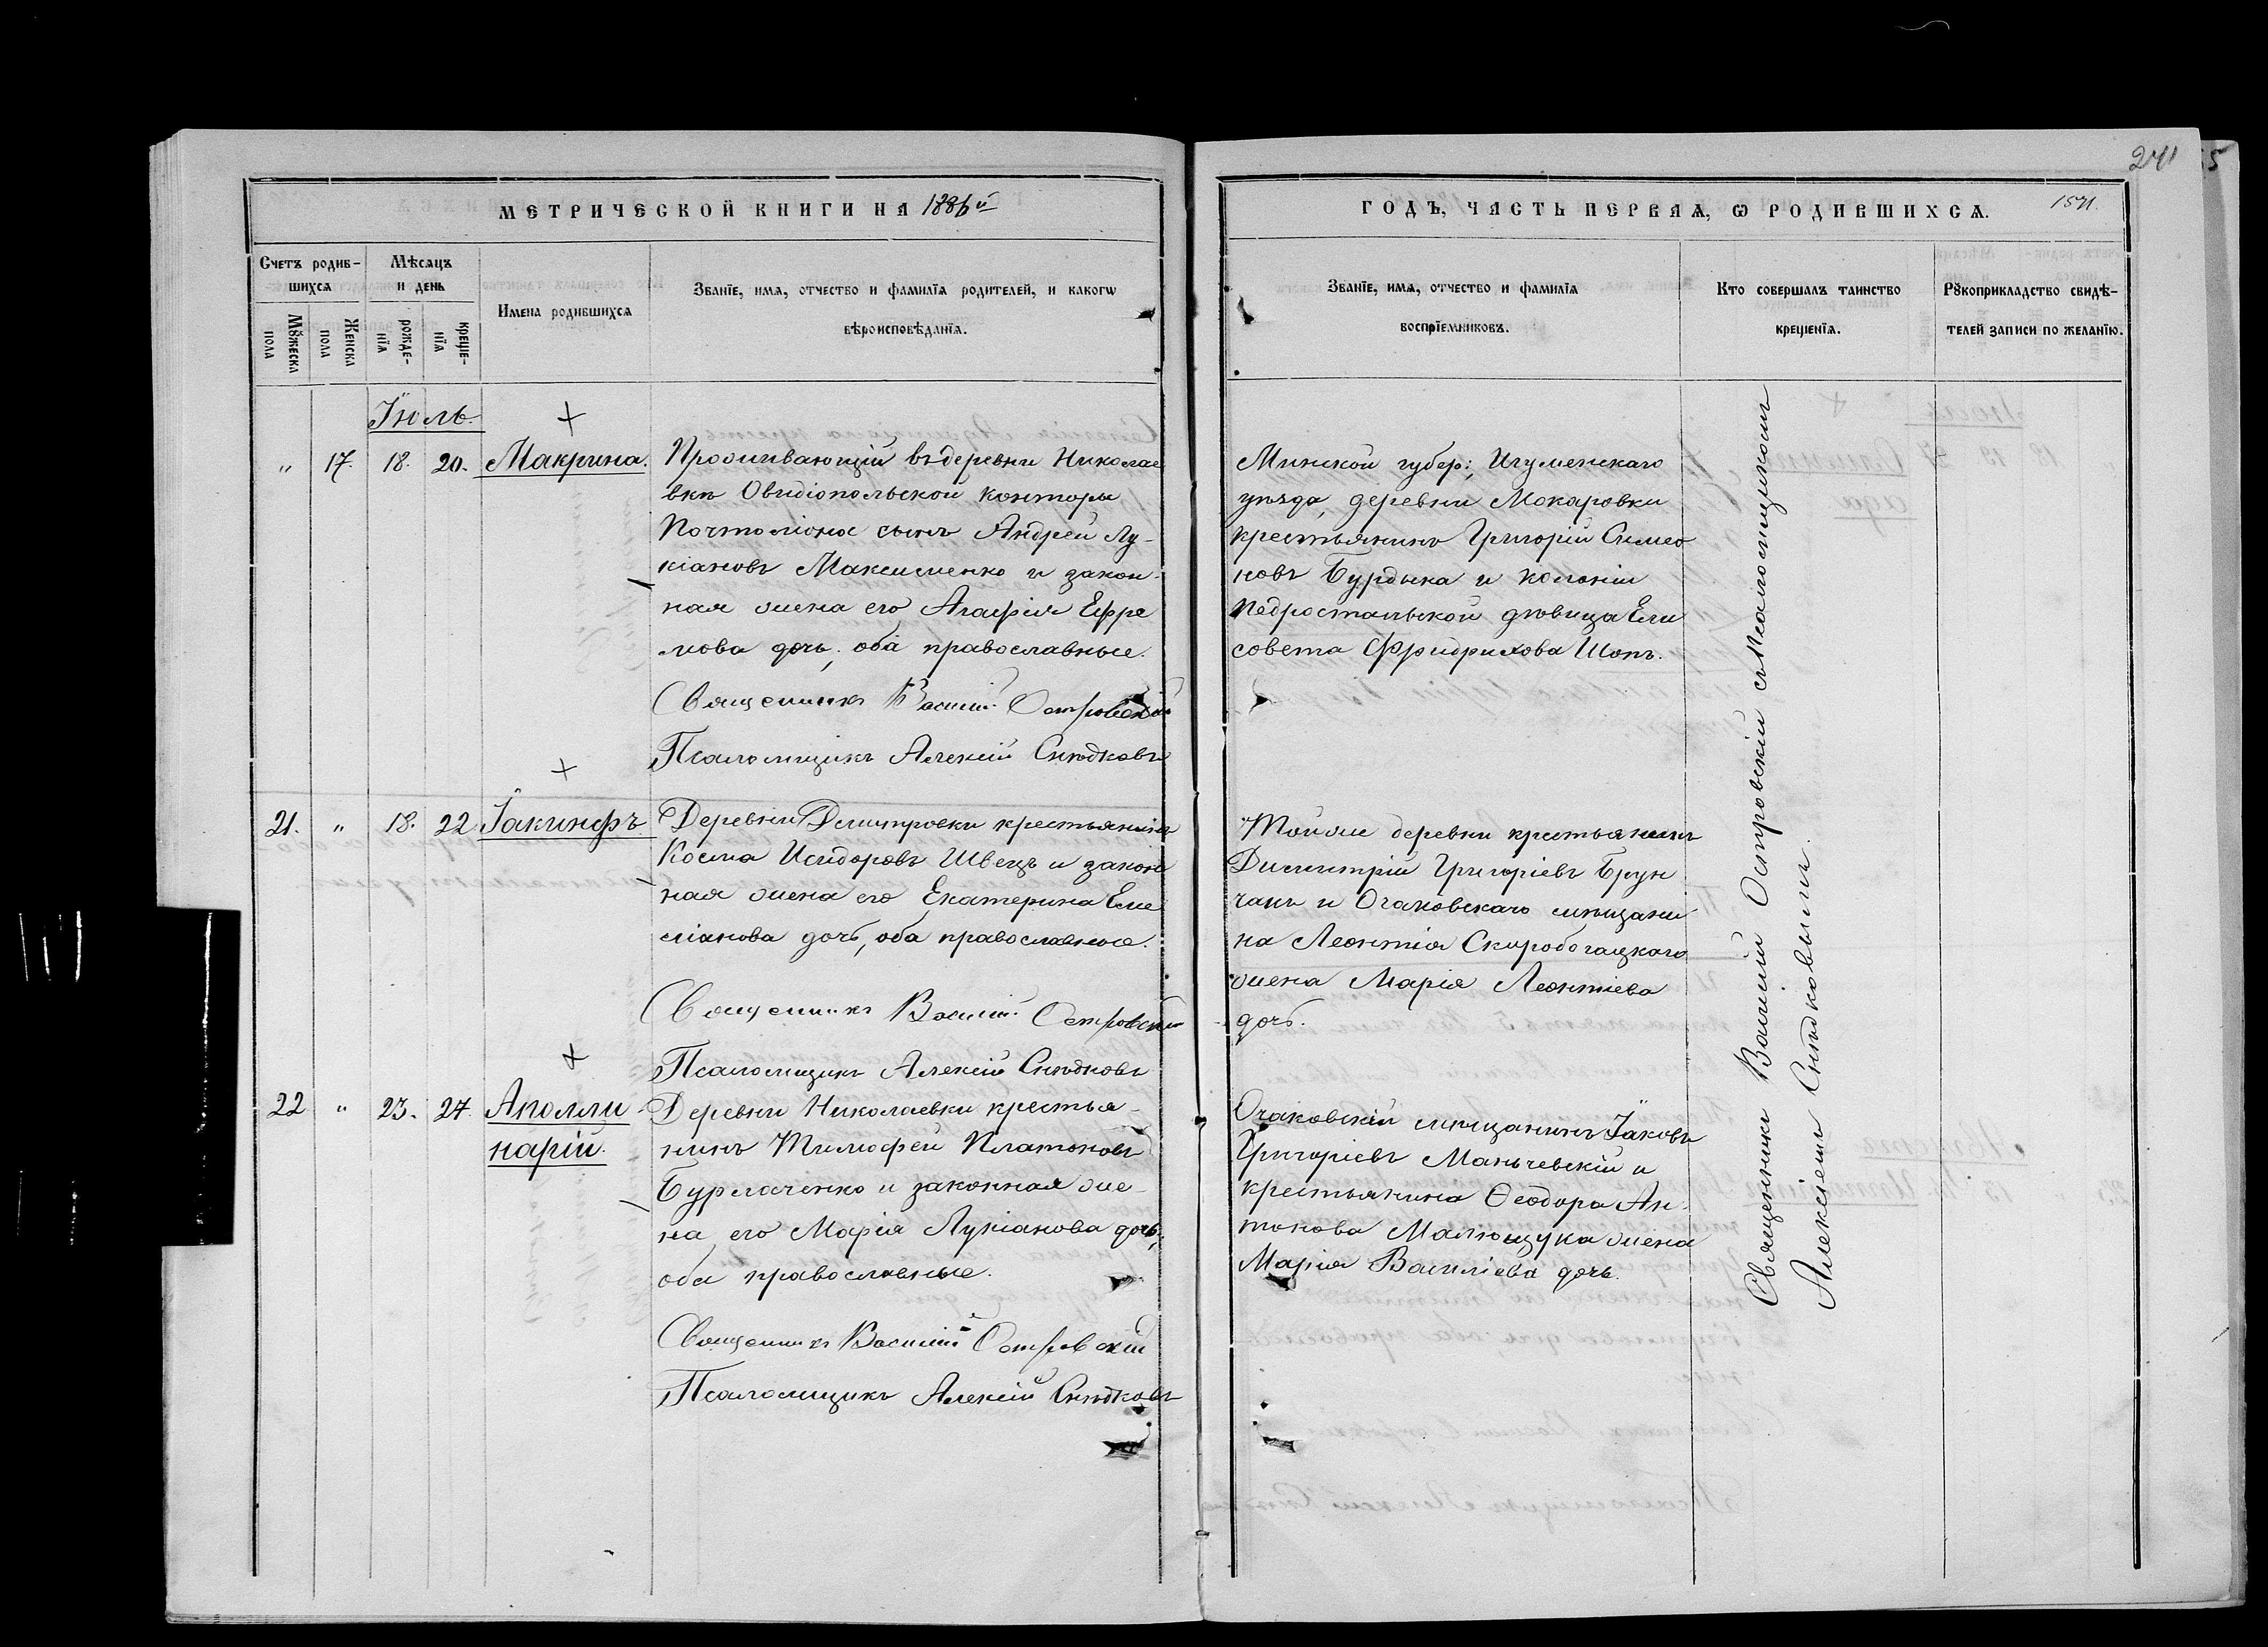 241
МЕТРИЧЕСКОЙ КНИГИ НА 1886й
ГОДЪ, ЧАСТЬ ПЕРВАѦ, Ѡ РОДИВШИХСѦ.
1571.
Счетъ родив-
шихсѧ
Мѣсѧцъ
и день
Мꙋжеска
пола
Женска
пола
рожде-
нїѧ
креще-
нїѧ
Имена родившихсѧ
Званїе, имѧ, отчество и фамилїѧ родителей, и какогѡ
вѣроисповѣданїѧ.
Званїе, имѧ, отчество и фамилїѧ
воспрїемниковъ.
Кто совершалъ таинство
крещенїѧ.
Рꙋкоприкладство свидѣ-
телей записи по желанїю.
Іюль
„ 17. 18. 20. Макрина.
Проживающій въ деревни Николае
вкѣ Овидіопольской конторы
Почтоліона сынъ Андрей Лу-
кіановъ Максименко и закон-
ная жена его Агафія Ефре
мова дочь, оба православные.
Священникъ Василій Островскій
Псаломщикъ Алексій Снѣдковъ
Минской губер:, Игуменскаго
уѣзда, деревни Макаровки
крестьянинъ Григорій Симео
новъ Бурдыка и колоніи
дѣвица Ели
совета Фридрихова Шопъ.
21. „ 18. 22. Іакинфъ
Деревни Димитровки крестьянинъ
Косма Исидоровъ Швецъ и закон
ная жена его Екатерина Еме
ліанова дочь, оба православные.
Священникъ Василій Островскій
Псаломщикъ Алексій Снѣдковъ
Тойже деревни крестьянинъ
Димитрій Григоріевъ Брун
чакъ и Очаковскаго мѣщани
на Леонтія Скиробогацкаго
жена Марія Леонтиева
дочь.
22 „ 23. 27. Аполли-
нарій.
Деревни Николаевки крестья-
нинъ Тимофей Платоновъ
Бурлаченко и законная же-
на его Марія Лукіанова дочь,
оба православные.
Священникъ Василій Островскій
Псаломщикъ Алексій Снѣдковъ
Очаковскій мѣщанинъ Іаковъ
Григоріевъ Маньчевскій и
крестьянина Ѳеодора Ан-
тонова Малющука жена
Марія Василіева дочь.
Священникъ Василій Островскій съ Псаломщикомъ
Алексіемъ Снѣдковымъ.